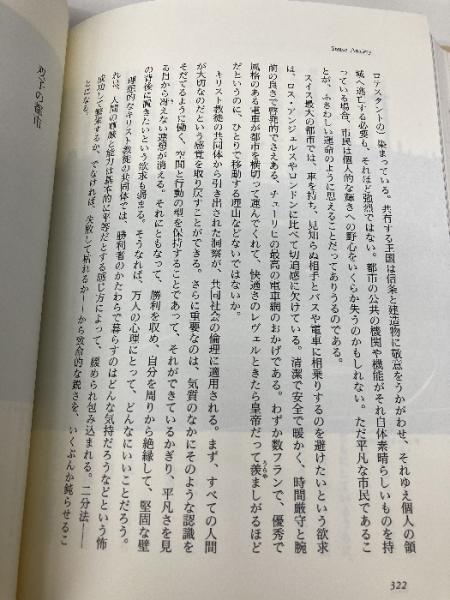 Status Anxiety
ロテスタントの一染まっている。共有する王国は信条と建造物に敬意をうかがわせ、それゆえ個人の領
域へ逃亡する必要も、それほど強烈ではない。都市の公共の機関や機能がそれ自体素晴らしいものを持
っている場合、市民は個人的な輝きへの野心をいくらか失うのかもしれない。ただ平凡な市民であるこ
とが、ふさわしい運命のように思えることだってありうるのである。
スイス最大の都市では、車を持ち、見知らぬ相手とバスや電車に相乗りするのを避けたいという欲求
は、ロス・アンジェルスやロンドンに比べて切迫感に欠けている。清潔で安全で暖かく、時間厳守と腕
前の良さで啓発的でさえある、チューリヒの最高の電車網のおかげである。わずか数フランで、優秀で
風格のある電車が都市を横切って運んでくれて、快適さのレヴェルときたら皇帝だって羨ましがるほど
だというのに、ひとりで移動する理由などないではないか。
キリスト教徒の共同体から引き出された洞察が、共同社会の倫理に適用される。まず、すべての人間
が大切なのだという感覚を取り戻すことができる。さらに重要なのは、気質のなかにそのような認識を
そだてるように働く、空間と行動の型を保持することであって、それができているかぎり、平凡さを見
る目から冴えない連想が消える。それにともなって、勝利を収め、自分を周りから絶縁して、堅固な壁
の背後に置きたいという欲求も弱まる。そうなれば、万人の心理にとって、どんなにいいことだろう。
理想的なキリスト教徒の共同体では、勝利者のかたわらで暮らすのはどんな気持だろうなどという怖
れは、人間の尊厳と能力は基本的に平等だとする感じ方によって、緩められ包み込まれる。二分法——
成功して繁栄するか、でなければ、失敗して枯れるか——から致命的な鋭さを、いくぶんか鈍らせるこ
とになる。
322